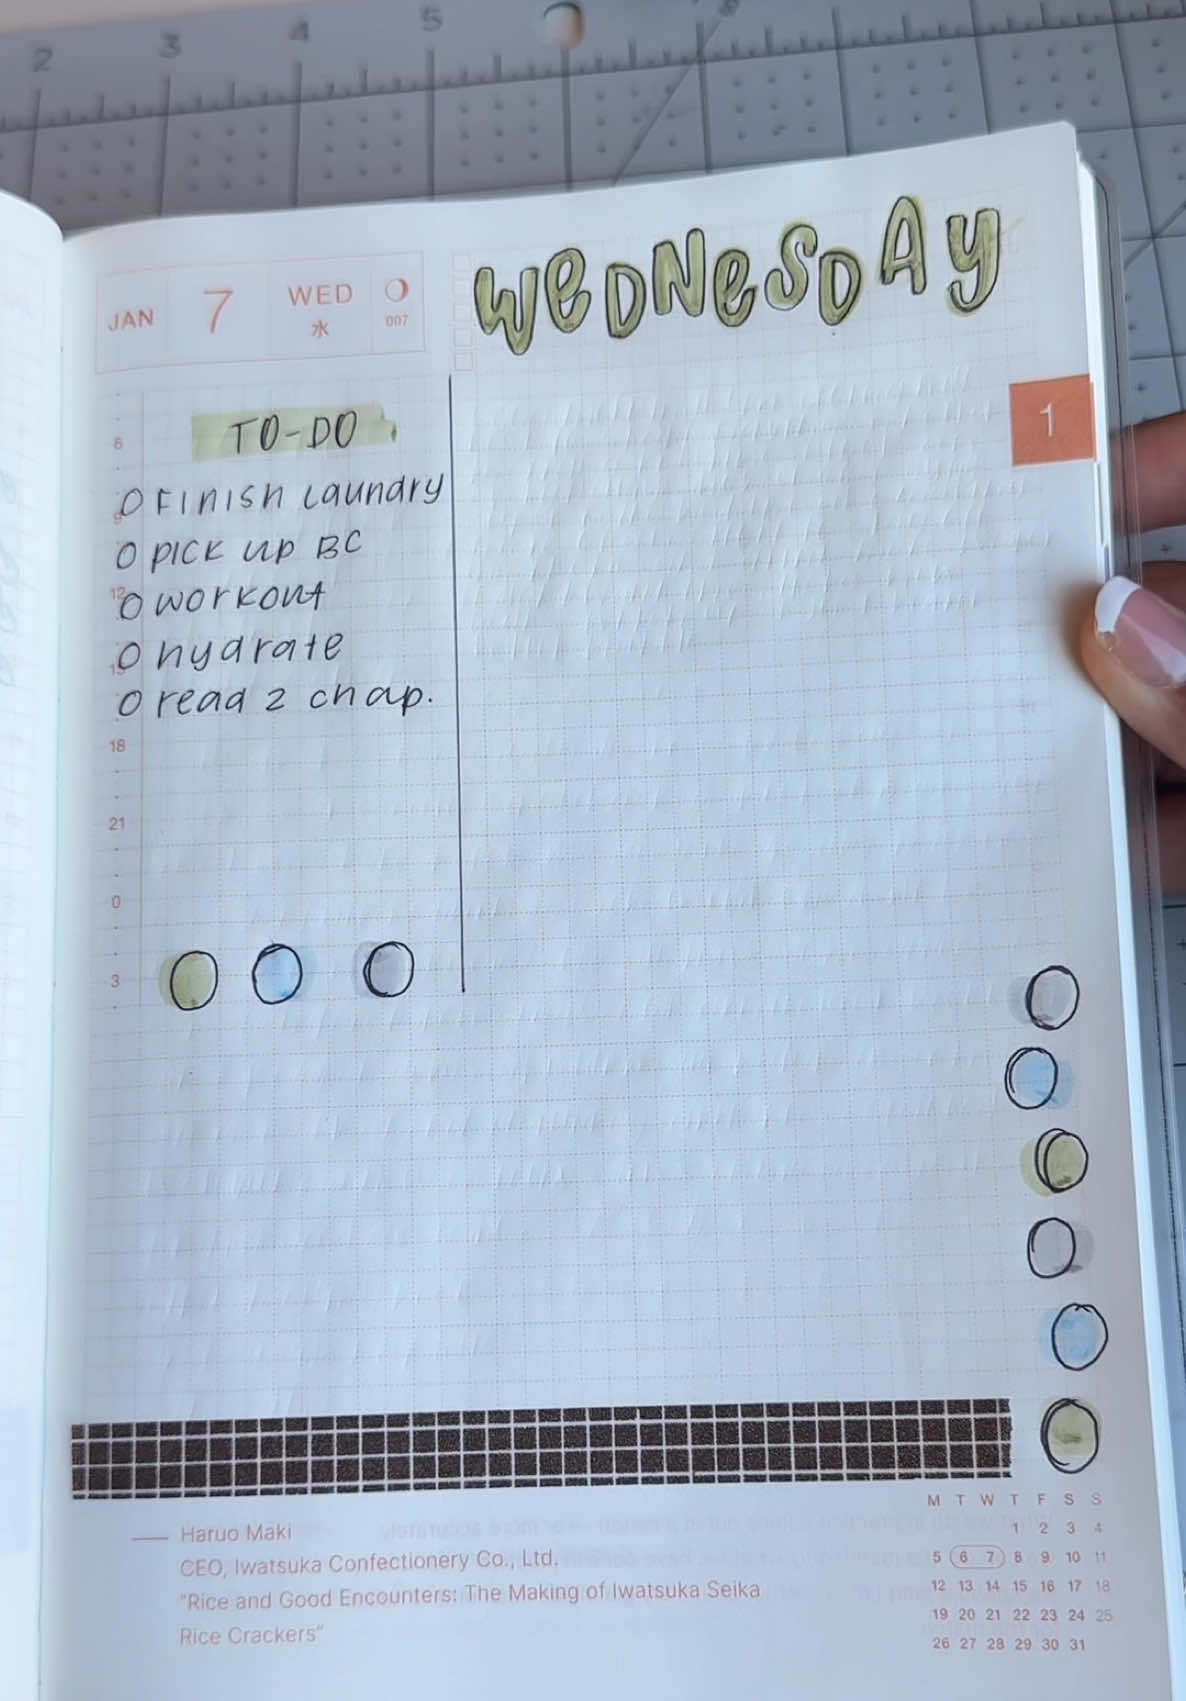 2 3 4 5
JAN 7 WED
水 007
WEDNESDAY
TO-DO
1
6
O FINISH Laundry
9
O PICK UP BC
12
O WORKOUT
O hydrate
15
O read 2 chap.
18
21
0
3
Haruo Maki
CEO, Iwatsuka Confectionery Co., Ltd.
"Rice and Good Encounters: The Making of Iwatsuka Seika
Rice Crackers"
M T W T F S S
1 2 3 4
5 6 7 8 9 10 11
12 13 14 15 16 17 18
19 20 21 22 23 24 25
26 27 28 29 30 31